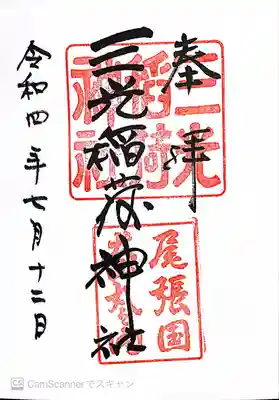 奉拝
三光稲荷神社
尾張国
令和四年七月十二日
CS CamScannerでスキャン